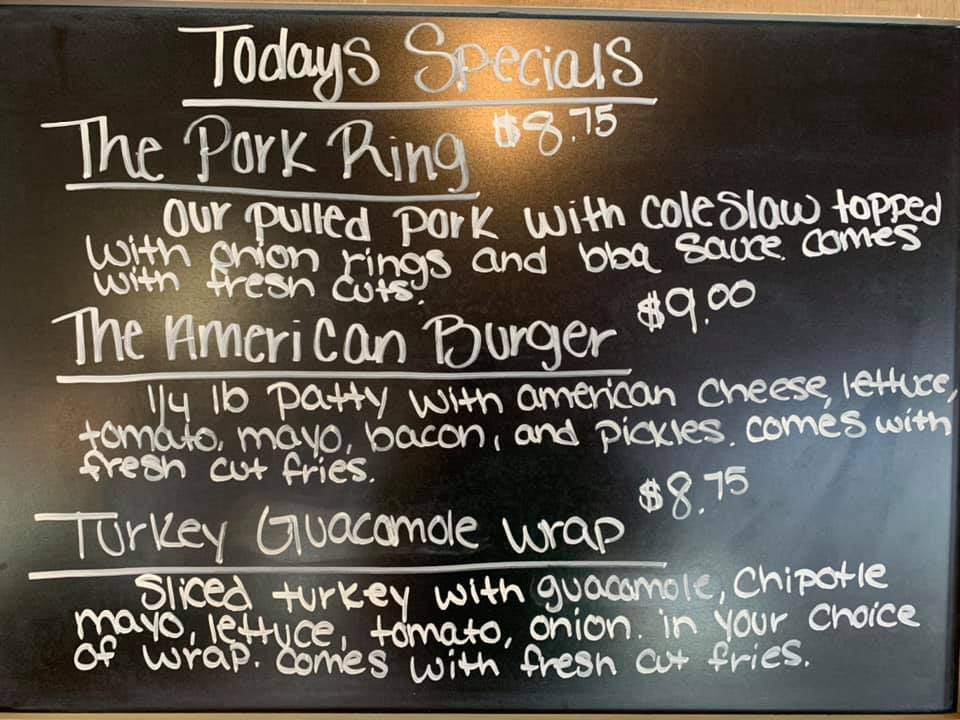 Todays Specials
The Pork Ring $8.75
Our pulled pork with coleslaw topped
with onion rings and bbq sauce. Comes
with fresh cuts.
The American Burger $9.00
1/4 lb patty with american cheese, lettuce,
tomato, mayo, bacon, and pickles. comes with
fresh cut fries.
Turkey Guacamole wrap $8.75
Sliced turkey with guacamole, Chipotle
mayo, lettuce, tomato, onion. in your choice
of wrap. Comes with fresh cut fries.